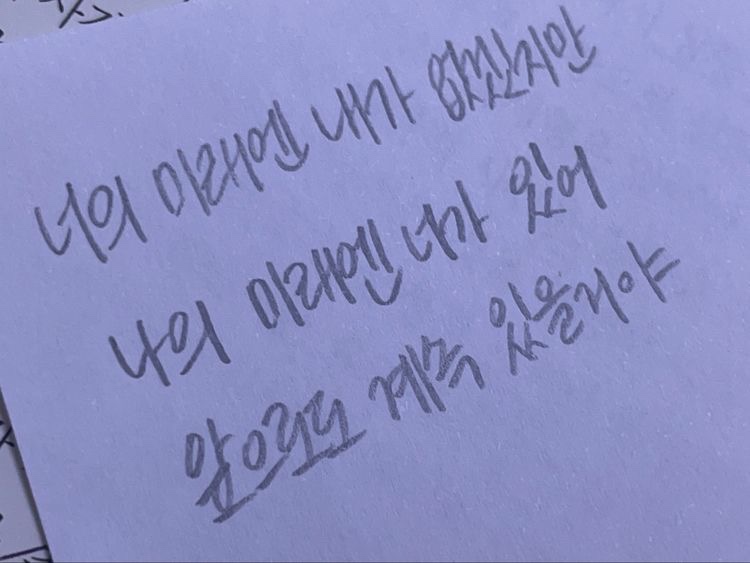 너의 미래엔 내가 없었지만
나의 미래엔 너가 있어
앞으로도 계속 있을거야